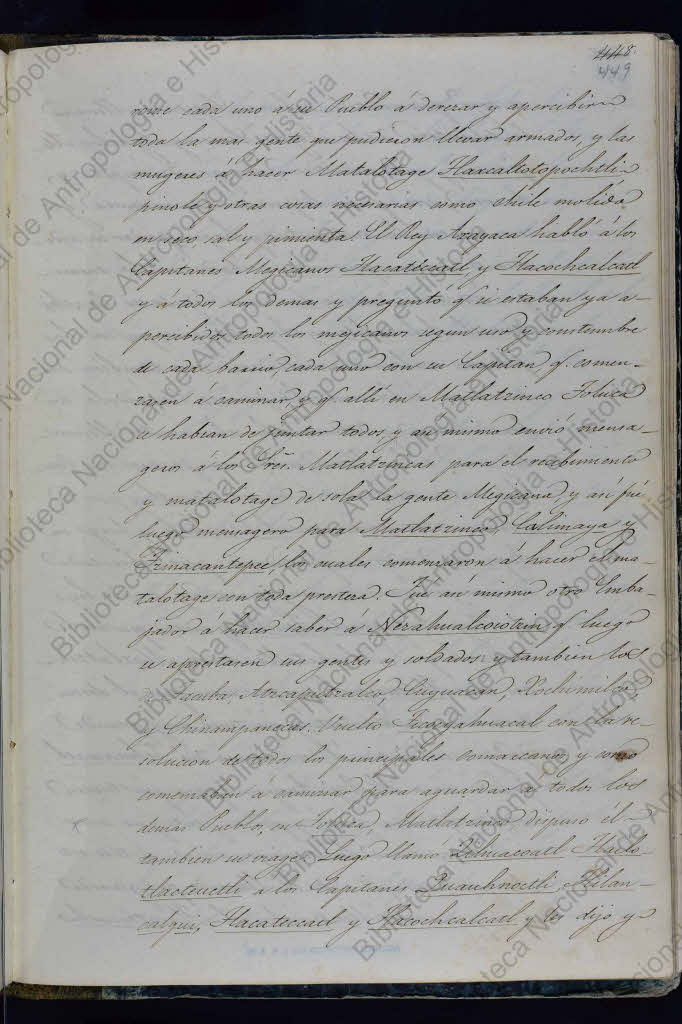 448.
449
ronse cada uno á su Pueblo á derezar y apercibir
toda la mas gente que pudieron llevar armados, y las
mugeres á hacer Matalotage Tlaxcaltotopochtli
pinole y otras cosas necesarias como chile molido
en seco sal y pimienta. El Rey Axayaca habló á los
Capitanes Megicanos Tlacatecatl, y Tlacochcalcatl
y á todos los demas y preguntó q.e si estaban ya a-
percibidos todos los mejicanos segun uso y constumbre
de cada barrio, cada uno con su Capitan q.e comen-
zaren á caminar, y q.e allí en Matlatzinco Toluca
se habian de juntar todos y asi mismo envió mensa-
geros á los Sres. Matlatzincas para el recibimiento
y matalotage de sola la gente Megicana, y así fué
luego mensagero para Matlatzinco, Calimaya y
Tzinacantepec, los cuales comenzaron á hacer el ma-
talotage con toda presteza. Fué asi mismo otro Emba-
jador á hacer saber á Nezahualcoiotzin q.e luego
se aprestasen sus gentes y soldados y tambien los
de Tacuba, Azcaputzalco, Cuyuacan, Xochimilco
y Chinampanecas. Vuelto Ticocyahuacatl con la re-
solucion de todos los principales comarcanos, y como
comenzaban á caminar para aguardar á todos los
demas Pueblos, en Toluca, Matlatzinco dispuso él
tambien su viage. Luego llamó Zihuacoatl Tlailo-
tlacteuctli á los Capitanes Quauhnoctli, Tilan-
calqui, Tlacateccatl y Tlacochcalcatl y les dijo y
Biblioteca Nacional de Antropología e Historia